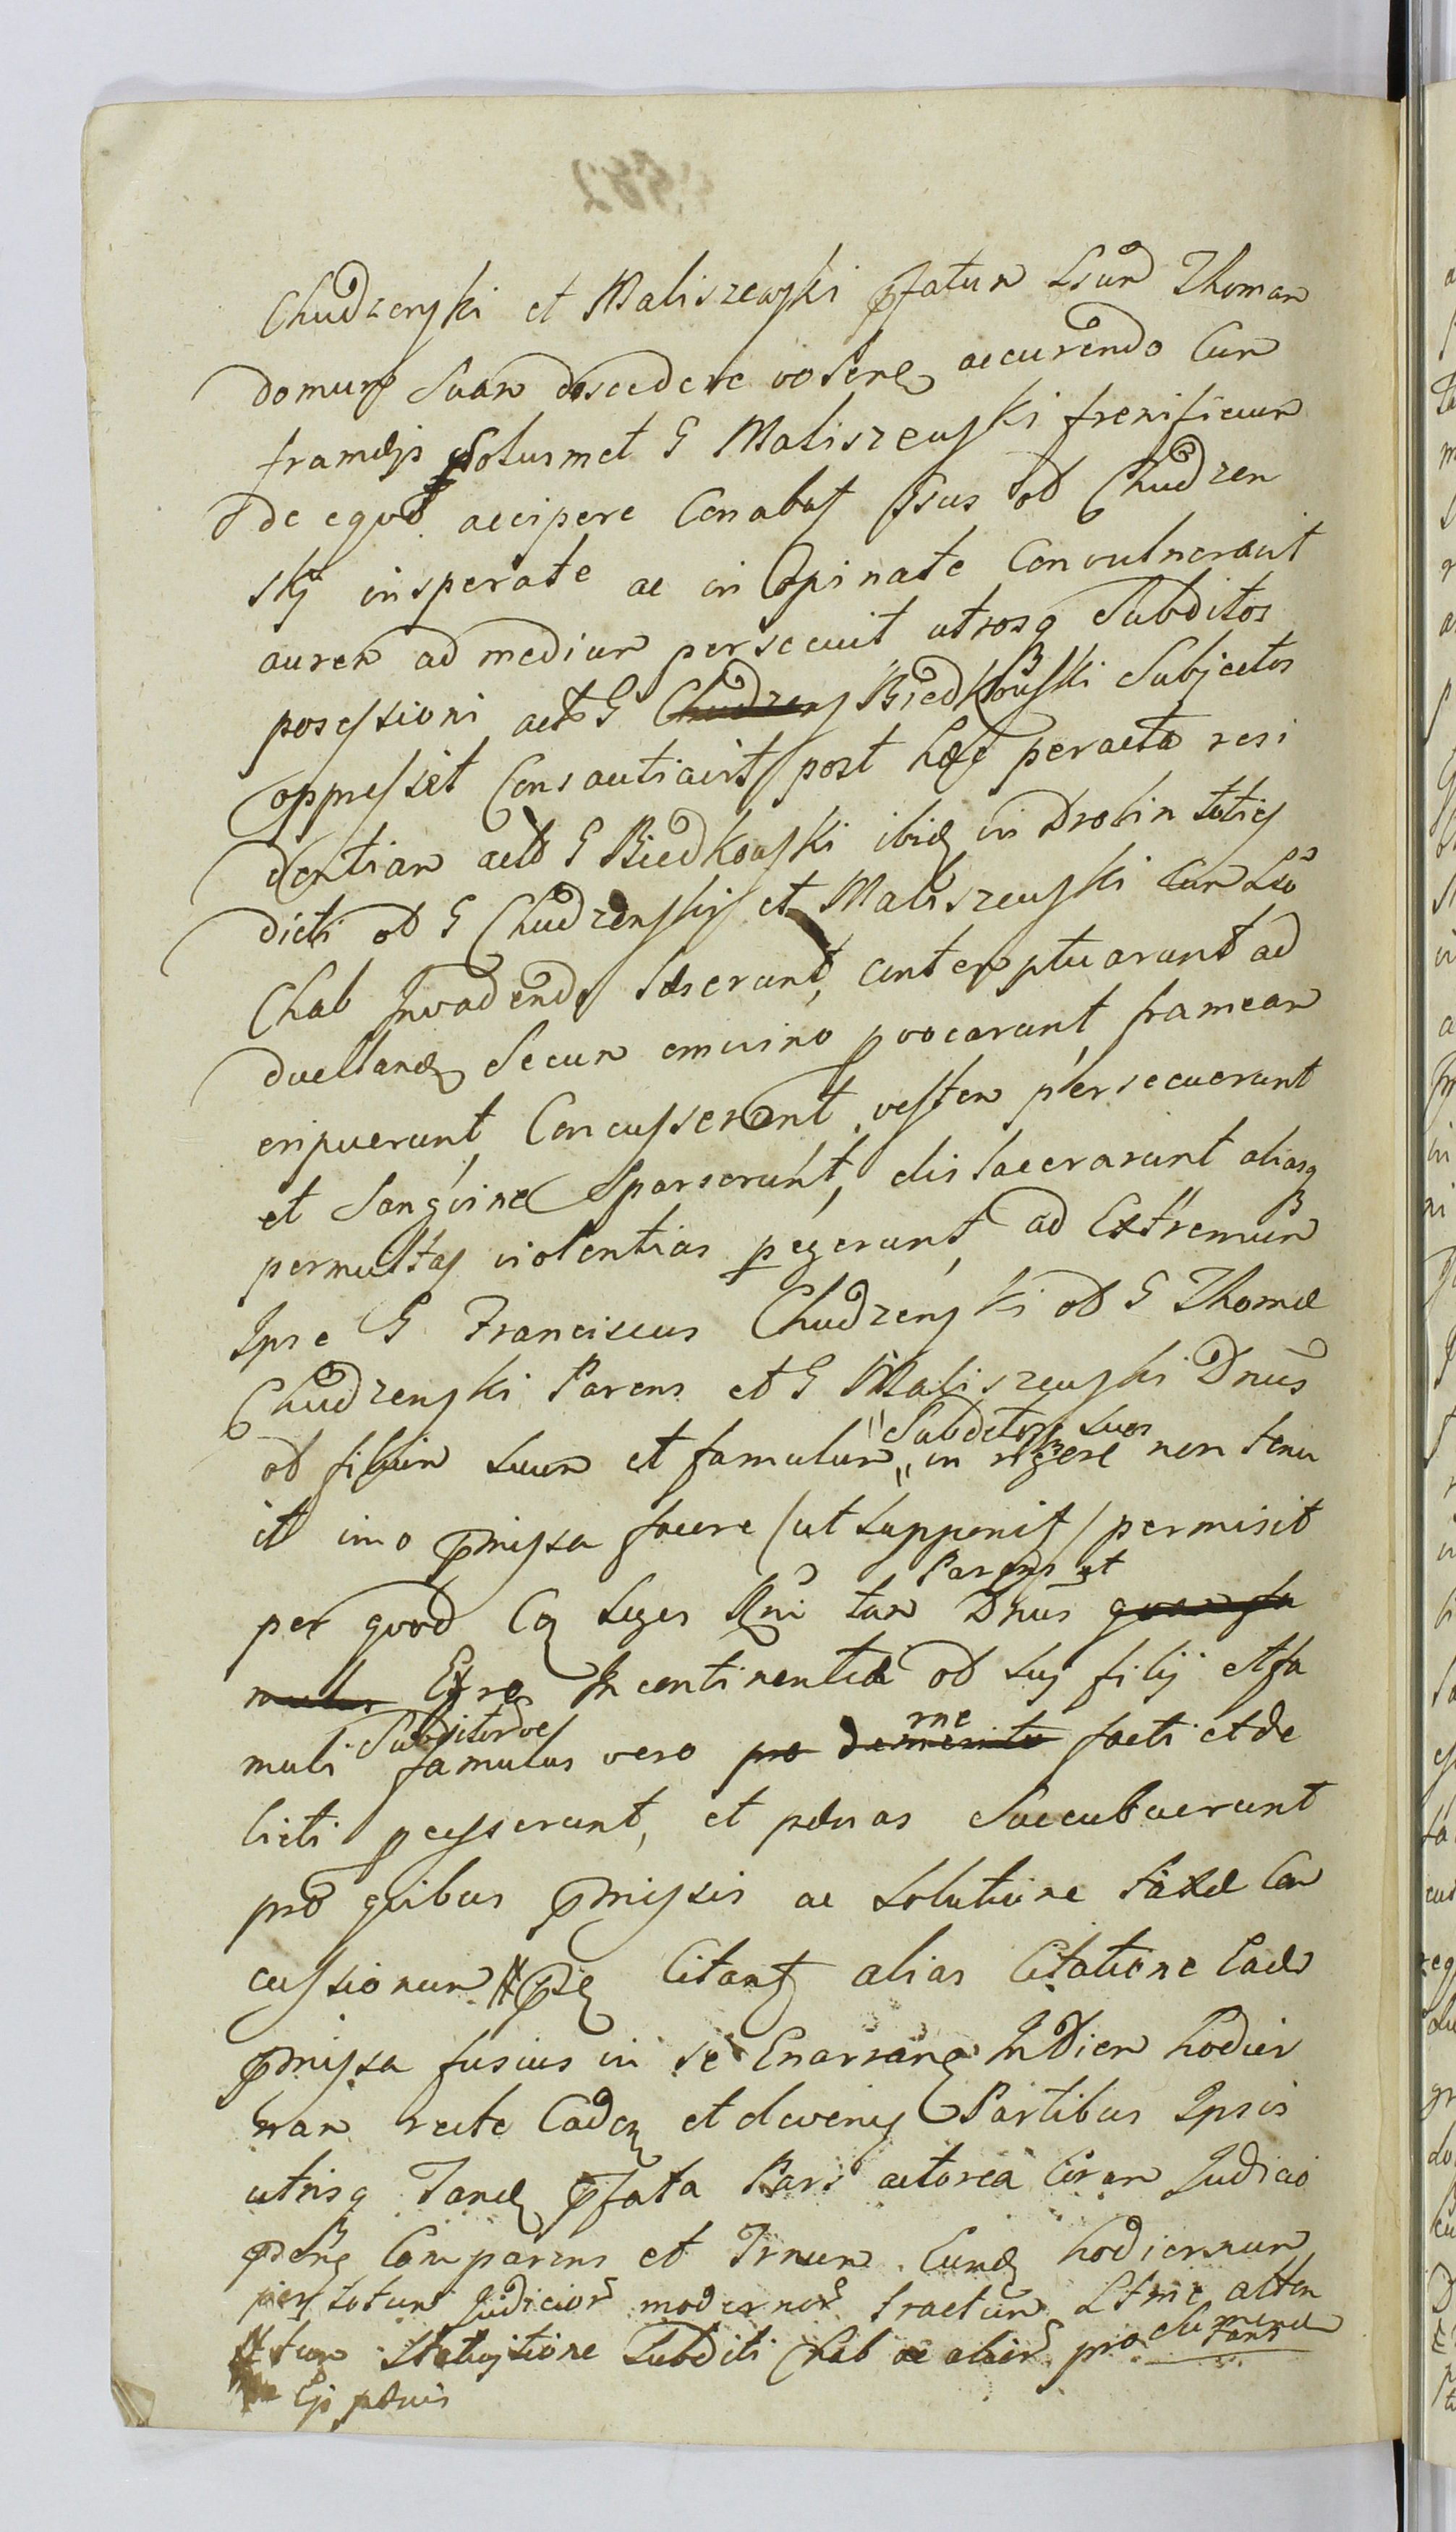 Chudzenski et Maliszewski pfatum Lsum Thomam
domum suam discedere volente accurendo cum
frameis solusmet G Maliszewski frenificum
de equo accipere Conabat ssus ob Chudzen
skj insperate ac in opinate Convulneravit
aurem ad medium persecuit utrosq Subditos
possessioni acto G Chudzens Biedkowski Subjectos
oppressit Consautiavit post hæc peracta resi
dentiam acto G Biedkowski ibid in Drobin toties
dicti ob G Chudzenski et Maliszewski cum Lso
Chab Invadendo læserunt, contemptuarunt ad
duelland Secum omnino pvocarunt, frameam
eripuerunt, Concusserant vestem persecuerunt
et Sanguine Sparserunt, dis lacerarunt aliasq
permultas violentias pegerunt, ad Extremum
Ipse G Franciscus Chudzenski ob G Thomæ
Chudzenski Parens et G Maliszewski Dnus
Subditos suos
ob filium suum et famulum in regere non tenu
it imo pmissa facere /ut supponit/ permisit
Parens et
per quod Cq Leges Rni tam Dnus quam fa
mulus Ex re In continentiæ ob suj filij et fa
Subditorve
me
muli famulus vero pro demerito facti et de
licti pcesserunt, et pænas Succubuerunt
pro quibus pmissis ac solutione taxæ Con
cussionum # psiq Citant alias Citatione Eade
pmissa fusius in se Enarrane In Diem hodier
nam recte Caden et deveniens Partibus Ipsis
utrisq Tand pfata Pars actorea Coram Judicio
pdenq Comparens et Trnum Eund hodiernum
per totum Judicior modernor tractum Ltme atten
tans
# tum Statuitione Subditi Chab ac alior pro
Ejs pænis